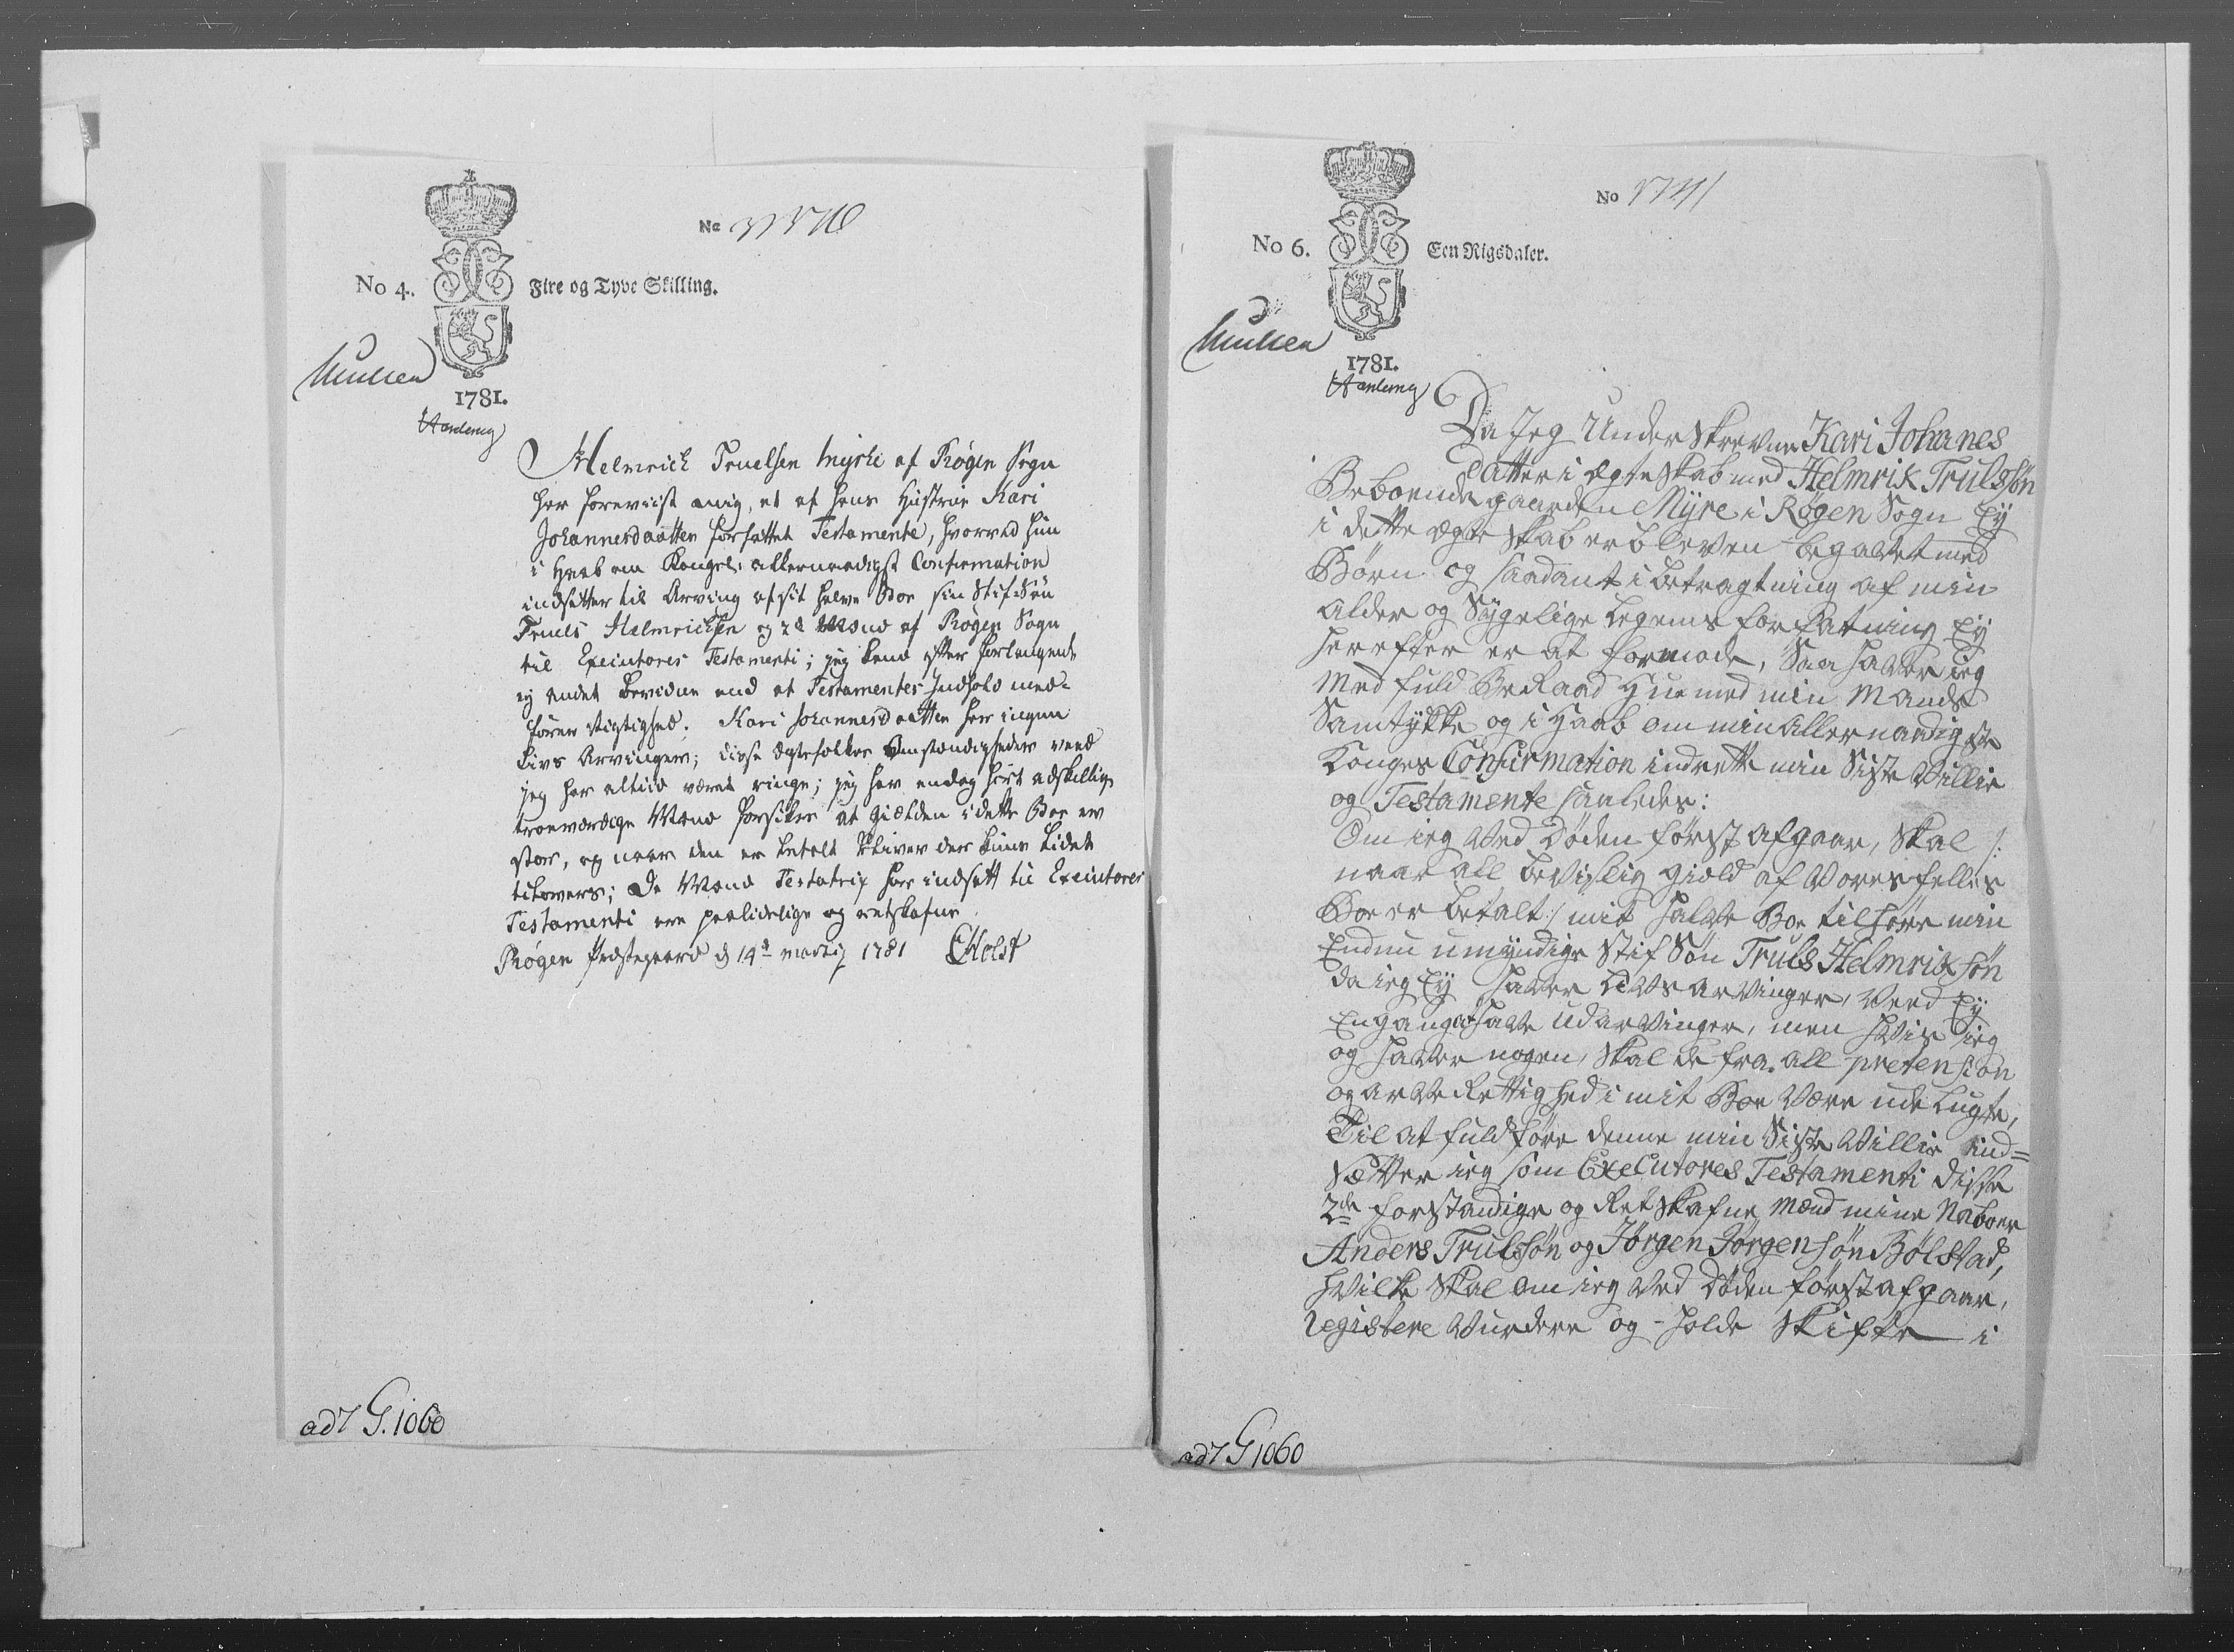 No 4.
Fire og Tyve Skilling.
1781.
Helmrich Truelsen Myrhe af Røgen Sogn
har foreviist mig, et af hans Hustrue Kari
Johannesdaatter forfattet Testamente, hvorved hun
i Haab om Kongel: allernaadigst Confirmation
indsetter til Arving af sit halve Boe sin Stif Søn
Truels Helmrichsen og 2de Mænd af Røgen Sogn
til Executores Testamenti; jeg kand efter forlangende
ej andet bevidne end at Testamentes Indhold med-
fører rigtighed. Kari Johannesdaatter har ingen
Livs Arvinger; disse Ægtefolkes Omstændigheder veed
jeg har altiid været ringe; jeg har endog hørt adskillige
troeværdige Mænd forsikre at Giælden i dette Boe er
stor, og naar den er betalt bliver der kuns lidet
tilovers; De Mænd Testatrix har indsatt til Executores
Testamenti ere paalidelige og retskafne
Røgen Præstegaard d 14de martij 1781 CHolst
ad7 G.1060
No 1741
No 6.
Een Rigsdaler.
1781.
Da Jeg Underskrevne Kari Johanes
Datter i Ægteskab med Helmrik Trulssøn
Beboende gaarden Myre i Røgen Sogn Ey
i dette Ægteskab er bleven begavet med
Børn og saadant i betragtning af min
alder og Sygelige Legems forfatning Ey
herefter er at formode, Saa haver ieg
med fuld BeRaad Hue med min Mands
Samtykke og i Haab om min Allernaadigste
Konges Confirmation indrette min Siste Villie
og Testamente saaledes:
Om ieg ved Døden først afgaar, skal /:
naar all bevislig giæld af Vores felles
Boe er betalt:/ mit halve Boe tilhøre min
Endnu umyndige Stif Søn Truls Helmriksøn
da ieg Ey haver Livs arvinger, veed Ey
Engang at have Udarvinger, men hvis ieg
og haver nogen, skal de fra all pretension
og arve Rettighed i mit Boe være udelugte,
Til at fuldføre denne min Siste Villie ind=
sætter ieg som Executores Testamenti disse
2de forstandige og Retskafne Mænd mine Naboer
Anders Trulssøn og Jørgen Jørgensøn Bølstad,
hvilke skal om ieg ved Døden først afgaar,
Registere Vurdere og holde Skifte i
ad7 G1060